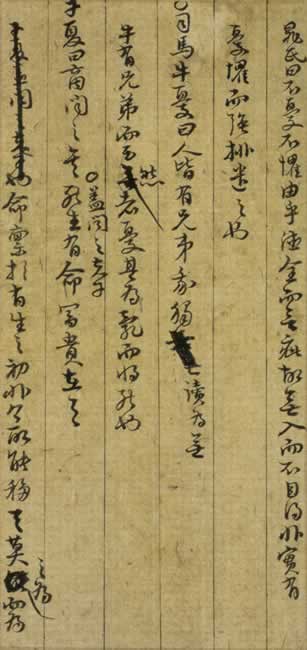 晁氏曰不憂不懼由乎德全而無疵故無入而不自得非實有
憂懼而強排遣之也
○司馬牛憂曰人皆有兄弟我獨亡讀為無
牛有兄弟而云然者憂其為亂而將死也
子夏曰商聞之矣死生有命富貴在天
○蓋聞之夫子
命稟於有生之初非今所能移天莫之為而為